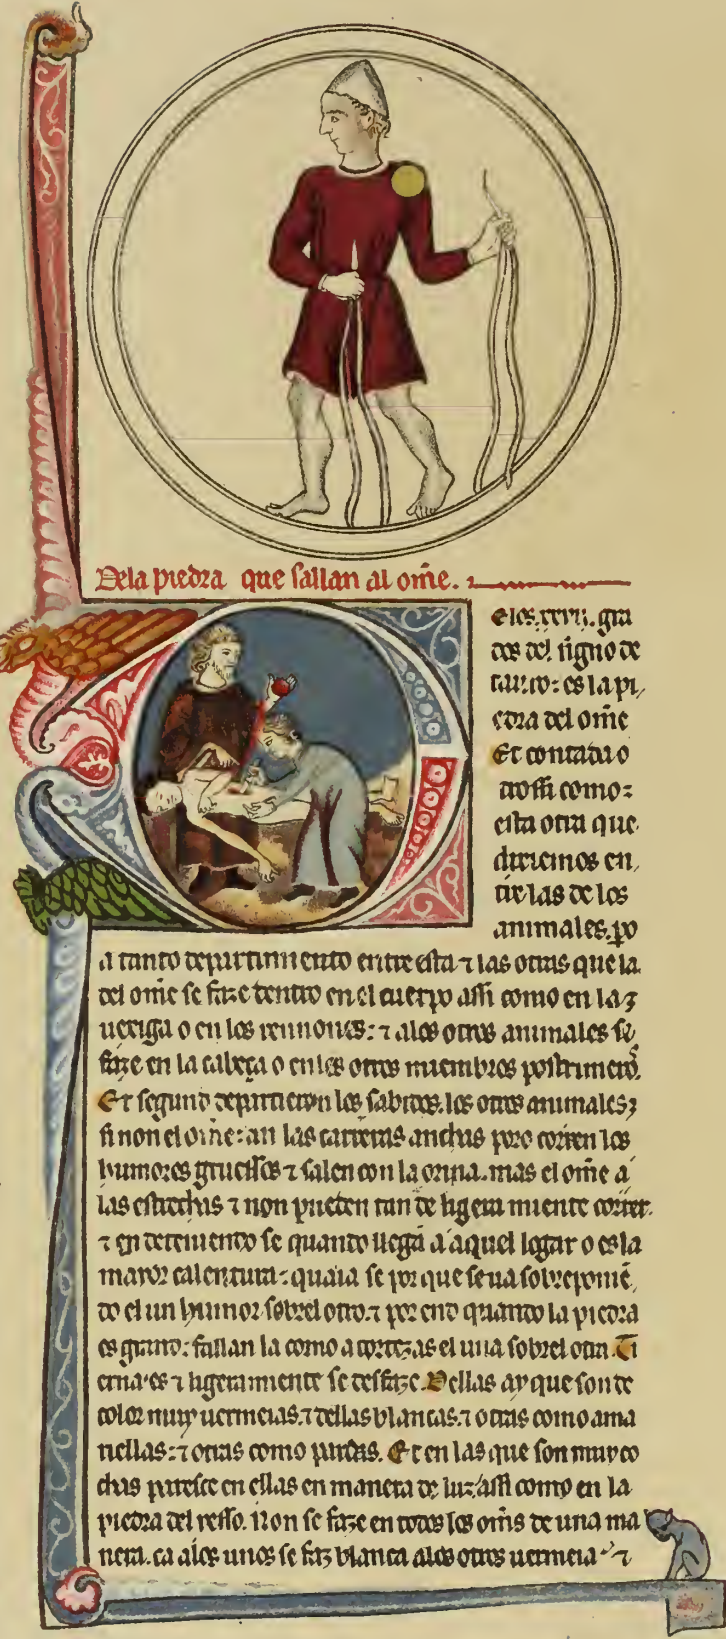 Dela piedra que fallan al om̄e.
elos .xxvii. gra
dos del signo de
tauro: es la pi,
edra del om̄e
Et contada o
trossi como:
esta otra que
diremos en,
tre las de los
animales. ꝑo
a tanto departimiento entre esta ⁊ las otras que la
del om̄e se faze dentro en el cuerpo assi como en la
uexiga o en los rennones: ⁊ alos otros animales se
faze en la cabeça o enlos otros miembros postrimeros.
Et segund departieron los sabios. los otros animales
si non el om̄e: an las carreras anchas poro corren los
humores gruessos ⁊ salen con la orina. mas el om̄e a
las estrechas ⁊ non pueden tan de ligera miente correr.
⁊ en deteniendo se quando llegā a aquel logar o es la
mayor calentura: quaia se por que se ua sobreponiē,
do el un humor sobrel otro. ⁊ por end quando la piedra
es grand: fallan la como a cortezas el una sobrel otra. Ti
erna es ⁊ ligeramiente se desfaze. Dellas ay que son de
color muy uermeias. ⁊ dellas blancas. ⁊ otras como ama
riellas: ⁊ otras como pardas. Et en las que son muy co
chas paresce en ellas en manera de luz. assi como en la
piedra del resso. Non se faze en todos los om̄s de una ma
nera. ca alos unos se faz blanca alos otros uermeia ⁊